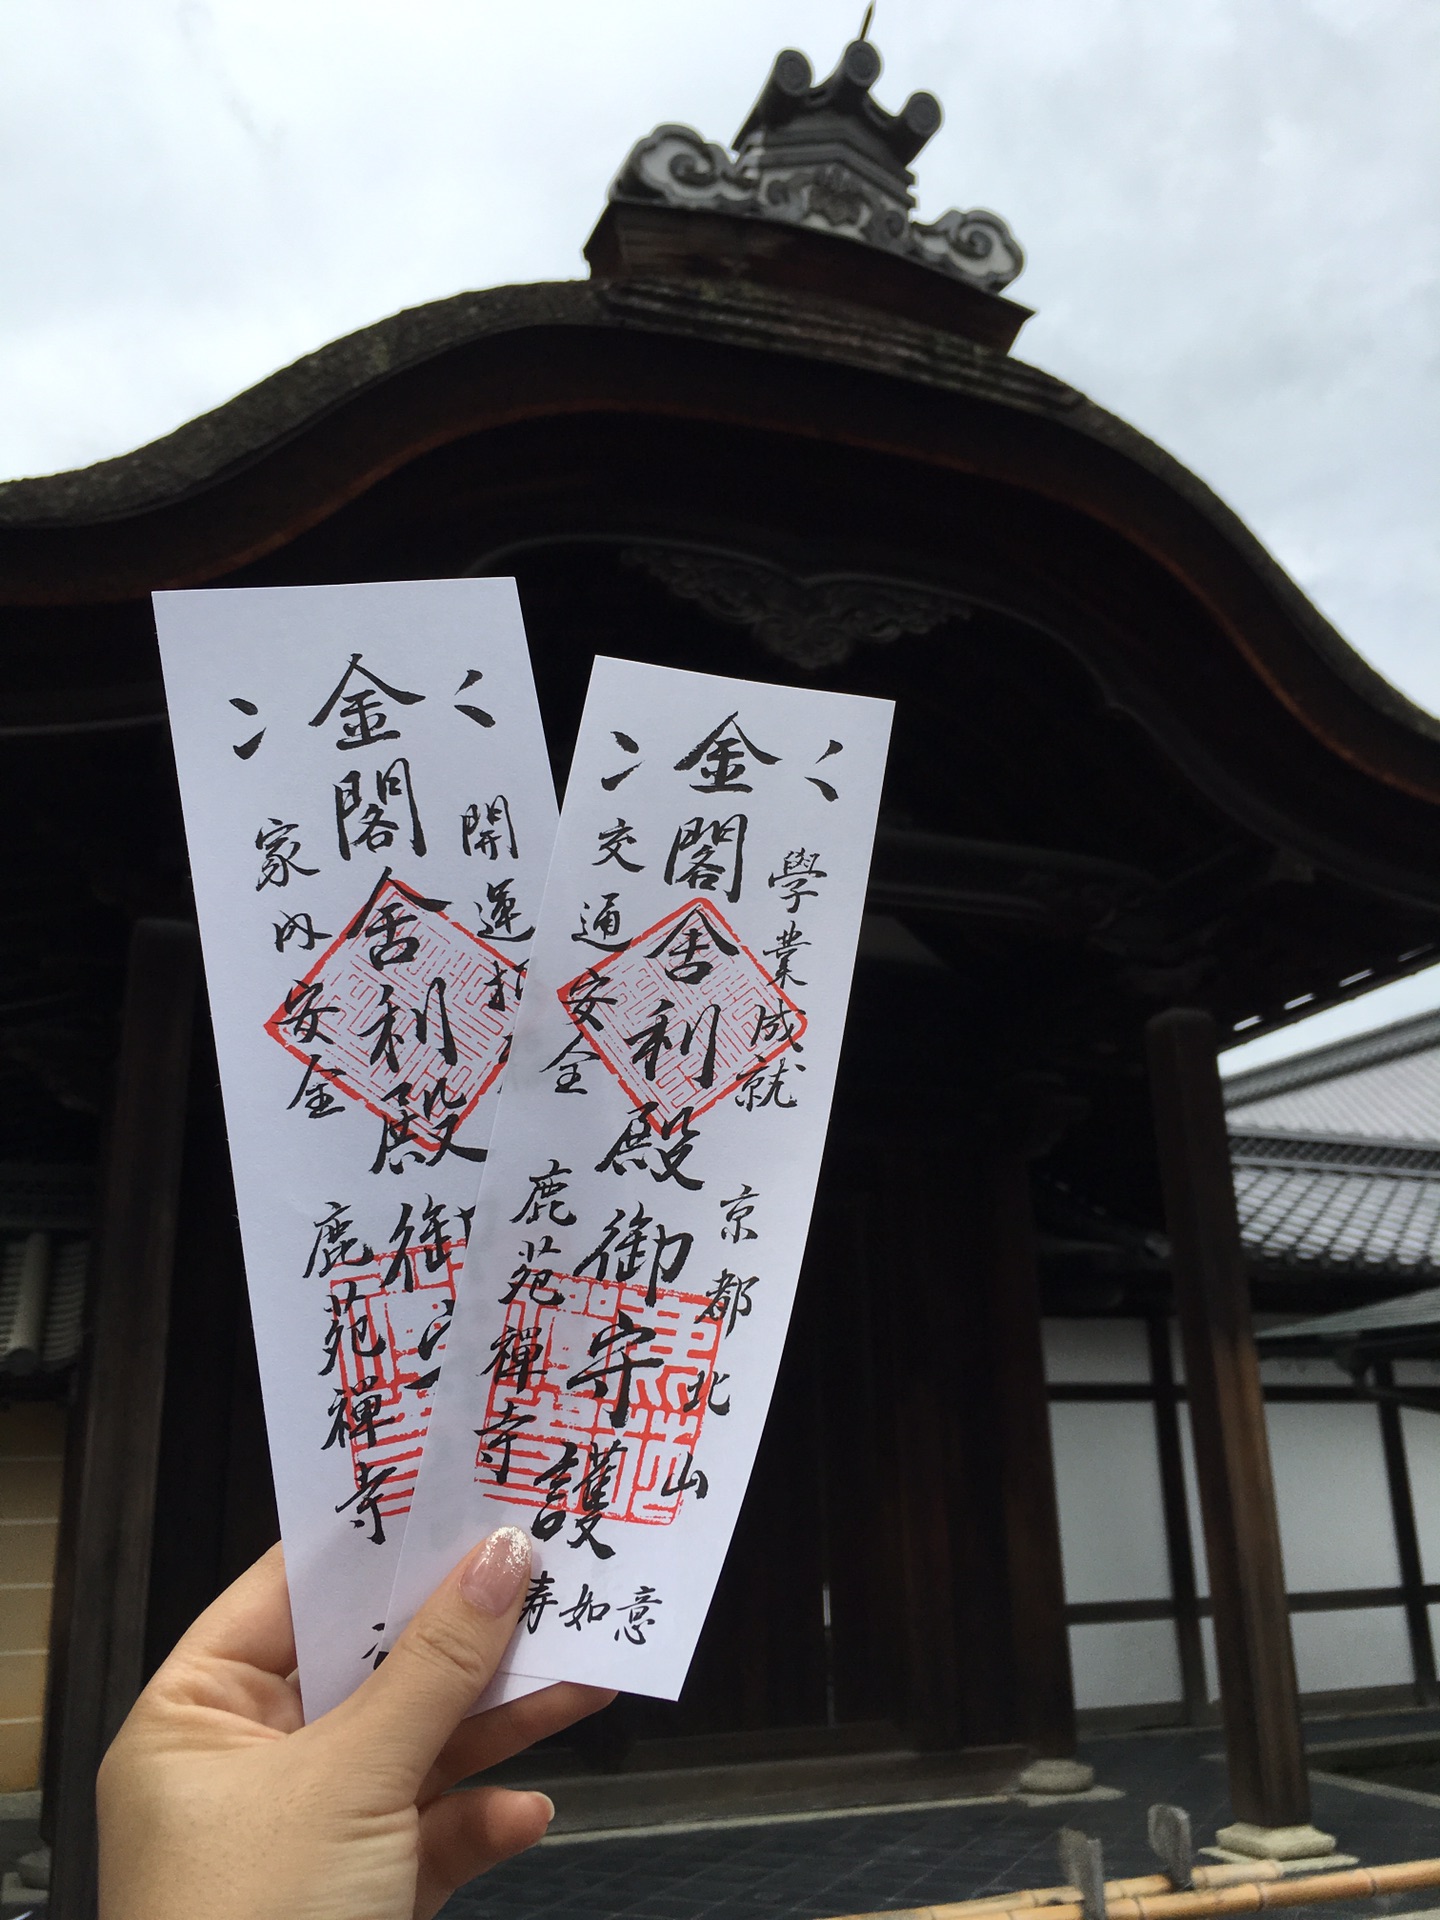 金閣舎利殿御
開運
家内安全
鹿苑禅寺
金閣舎利殿御守護
學業成就
交通安全
京都北山
鹿苑禅寺
寿如意